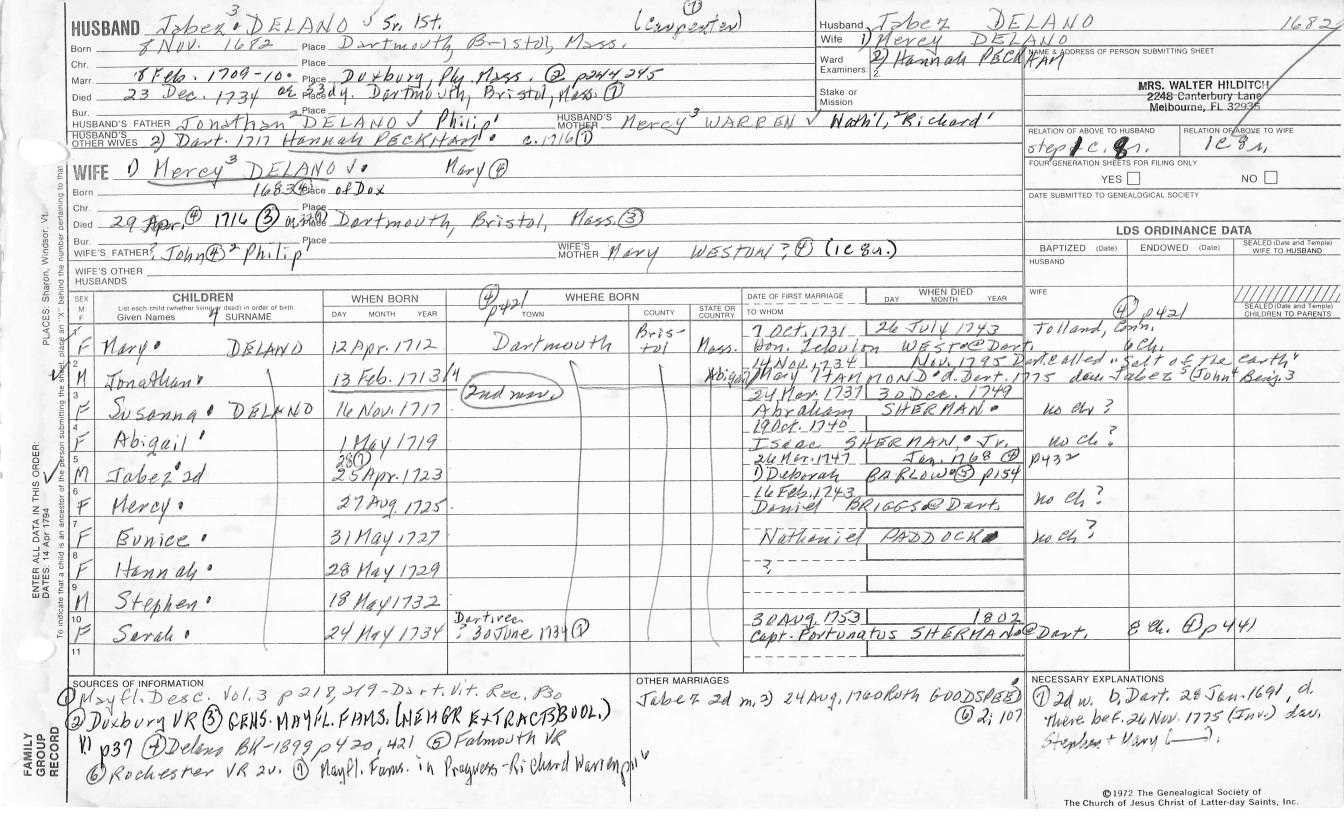 HUSBAND Jabez³ DELANO Sr. 1st. (Carpenter) ⑦
Born 8 Nov. 1682 Place Dartmouth, Bristol, Mass.
Chr. Place
Marr 8 Feb. 1709-10. Place Duxbury, Ply. Mass. ② p244, 245
Died 23 Dec. 1734 or 23dy. Dartmouth, Bristol, Mass. ①
Bur. Place
HUSBAND'S FATHER Jonathan² DELANO Philip¹ HUSBAND'S MOTHER Mercy³ WARREN Nath'l,² Richard¹
HUSBAND'S OTHER WIVES 2) Dart. 1717 Hannah PECKHAM. c. 1716 ①
Husband Jabez DELANO 1682
Wife 1) Mercy DELANO
2) Hannah PECKHAM
Ward
Examiners 2.
Stake or Mission
NAME & ADDRESS OF PERSON SUBMITTING SHEET
MRS. WALTER HILDITCH
2248 Canterbury Lane
Melbourne, FL 32935
RELATION OF ABOVE TO HUSBAND RELATION OF ABOVE TO WIFE
step 1 c. 8 r. 1 c 8 r.
FOUR GENERATION SHEETS FOR FILING ONLY
YES NO
DATE SUBMITTED TO GENEALOGICAL SOCIETY
WIFE 1) Mercy³ DELANO. Mary ④
Born 1683 ④ Place of Dux
Chr. Place
Died 29 Apr. ④ 1716 ③ Place Dartmouth, Bristol, Mass. ③
Bur. Place
WIFE'S FATHER ? John ④ ² Philip¹ WIFE'S MOTHER Mary WESTON? ④ (1 c 8 r.)
WIFE'S OTHER HUSBANDS
LDS ORDINANCE DATA
BAPTIZED (Date) ENDOWED (Date) SEALED (Date and Temple) WIFE TO HUSBAND
HUSBAND
WIFE
SEALED (Date and Temple) CHILDREN TO PARENTS
④ p421
SEX M F CHILDREN WHEN BORN WHERE BORN DATE OF FIRST MARRIAGE WHEN DIED
List each child (whether living or dead) in order of birth
Given Names SURNAME DAY MONTH YEAR TOWN COUNTY STATE OR COUNTRY TO WHOM DAY MONTH YEAR
④ p421
1 F Mary. DELANO 12 Apr. 1712 Dartmouth Bristol Mass. 7 Oct. 1731. 26 July 1743 Tolland, Conn.
Hon. Zebulon WEST @ Dart. 6 Ch.
2 M Jonathan. 13 Feb. 1713/4 14 Nov. 1734 Nov. 1795 Dart. called "Salt of the earth"
Abigail/Mary HAMMOND d. Dart. 1775 dau. Jabez³ (John² Benj.
2nd mar.
3 F Susanna. DELANO 16 Nov. 1717 24 Mar. 1737 30 Dec. 1749
Abraham SHERMAN. no ch?
4 F Abigail 1 May 1719 19 Oct. 1740
Isaac SHERMAN, Jr. no ch?
5 M Jabez 2d 25 Apr. 1723 28 ① 26 Mar. 1747 Jan. 1768 ④ p432
1) Deborah BARLOW ⑤ p154
6 F Mercy. 27 Aug. 1725 16 Feb. 1743
Daniel BRIGGS @ Dart. no ch?
7 F Eunice. 31 May 1727 Nathaniel PADDOCK no ch?
8 F Hannah. 28 May 1729 ?
9 M Stephen. 18 May 1732
10 F Sarah. 24 May 1734 ? 30 June 1734 ① 30 Aug. 1753 1802
Capt. Fortunatus SHERMAN @ Dart. 8 Ch. ④ p441
11
SOURCES OF INFORMATION
① Mayfl. Desc. Vol. 3 p 218, 219 - Dart. Vit. Rec. p30
② Duxbury VR ③ GENS. MAYFL. FAMS. (NEHGR EXTRACTS BOOL.)
V.1 p37 ④ Delano BK-1899 p 420, 421 ⑤ Falmouth VR
⑥ Rochester VR 2v. ⑦ Mayfl. Fams. in Progress - Richard Warren p11
OTHER MARRIAGES
Jabez 2d m. 2) 24 Aug. 1760 Ruth GOODSPEED
⑥ 2; 107
NECESSARY EXPLANATIONS
① 2d w. b. Dart. 28 Jan. 1691, d.
there bef. 26 Nov. 1775 (Inv.) dau.
Stephen + Mary (___).
©1972 The Genealogical Society of
The Church of Jesus Christ of Latter-day Saints, Inc.
PLACES: Sharon, Windsor, Vt.
ENTER ALL DATA IN THIS ORDER:
DATES: 14 Apr 1794
To indicate that a child is an ancestor of the person submitting the sheet, place an "X" behind the number pertaining to that
FAMILY GROUP RECORD